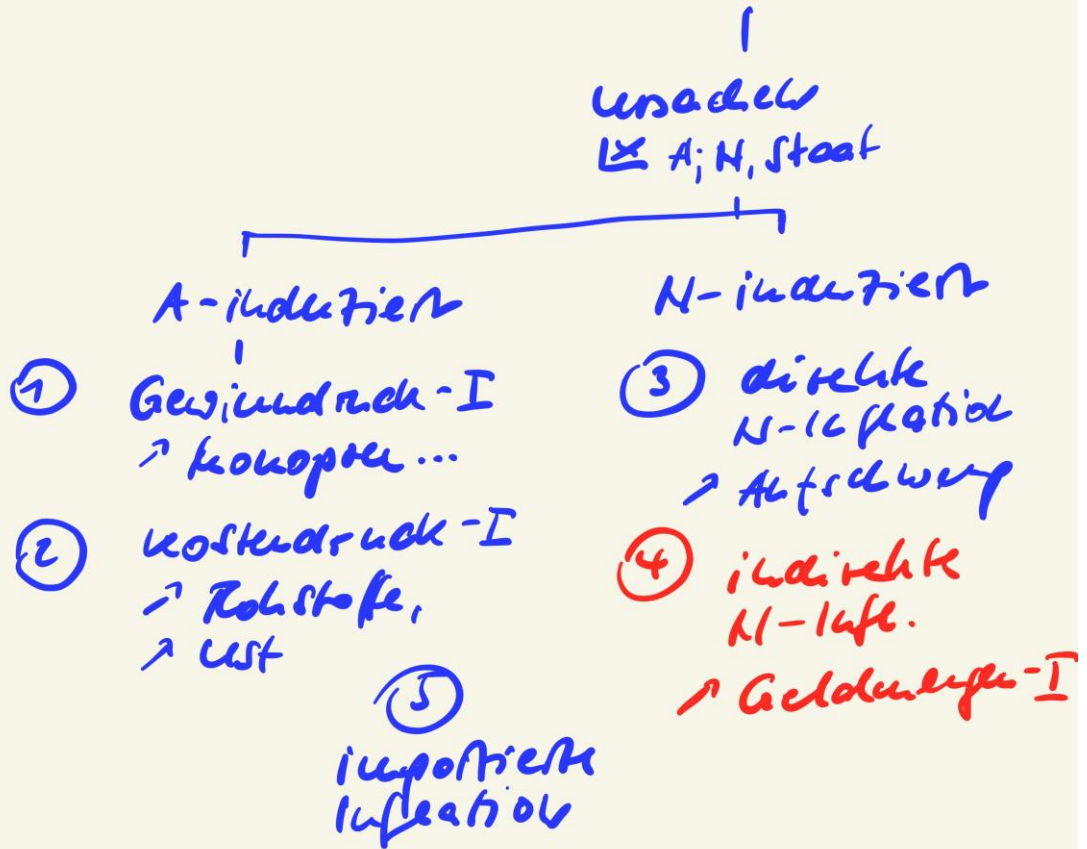 Ursachen
A; N, Staat
A-induziert
① Gewinndruck-I
↗ Monopole...
② Kostendruck-I
↗ Rohstoffe,
↗ USt
N-induziert
③ direkte
N-Inflation
↗ Aufschwung
④ indirekte
N-Infl.
↗ Geldmengen-I
⑤
importierte
Inflation